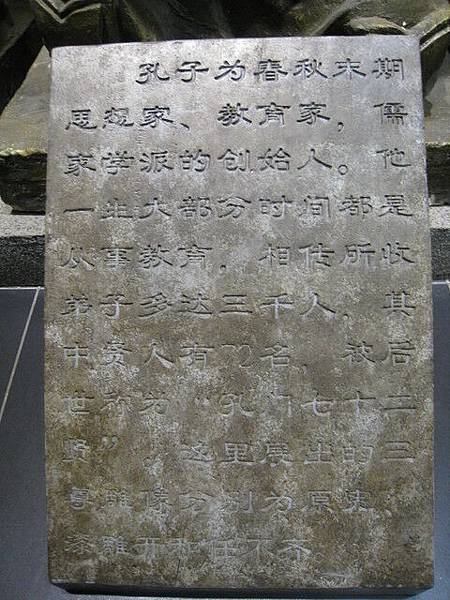 孔子为春秋末期
思想家、教育家，儒
家学派的创始人。他
一生大部分时间都是
从事教育，相传所收
弟子多达三千人，其
中贤人有72名，被后
世称为“孔门七十二
贤”，这里展出的三
尊雕像分别为原宪、
漆雕开和任不齐